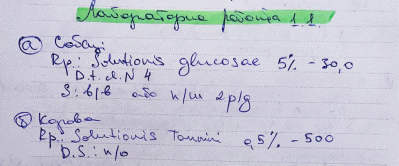 Лабораторна робота 1.1.
а) Собаці
Rp.: Solutionis glucosae 5% - 30,0
D.t.d.N 4
S: в/в або п/ш 2 р/д
б) Корова
Rp.: Solutionis Tannini 0,5% - 500
D.S.: п/о